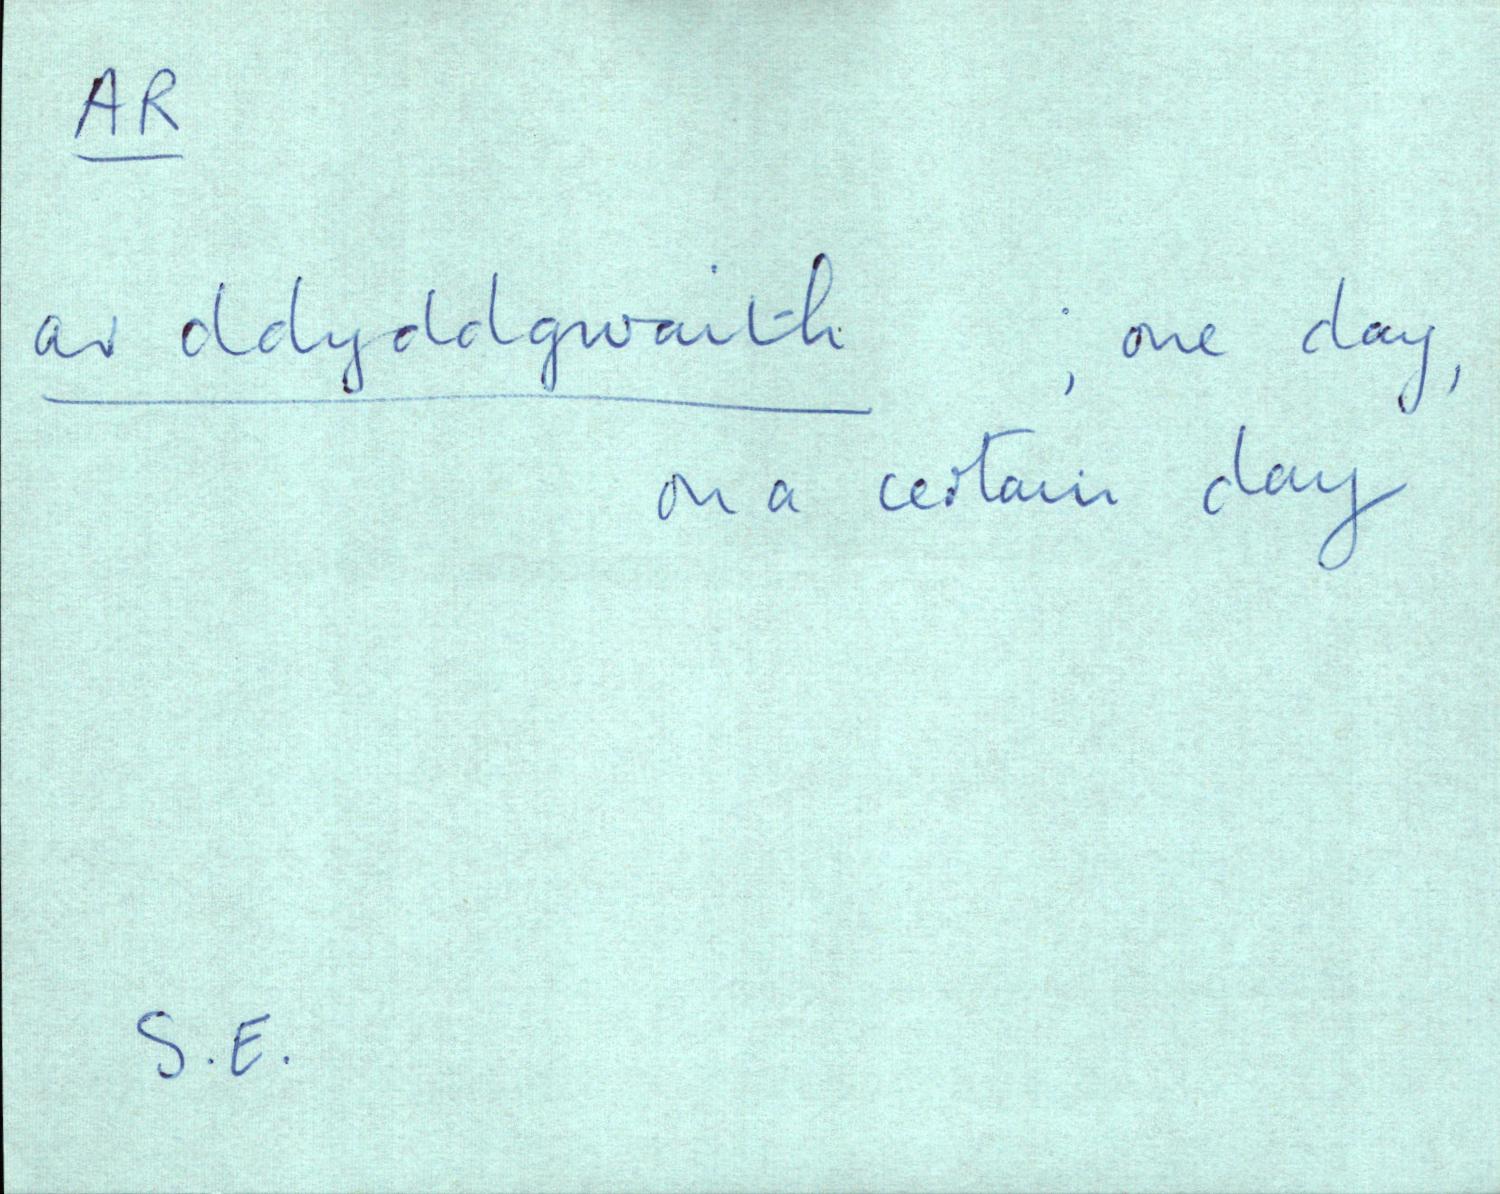 AR
ar ddyddgwaith ; one day,
on a certain day
S.E.